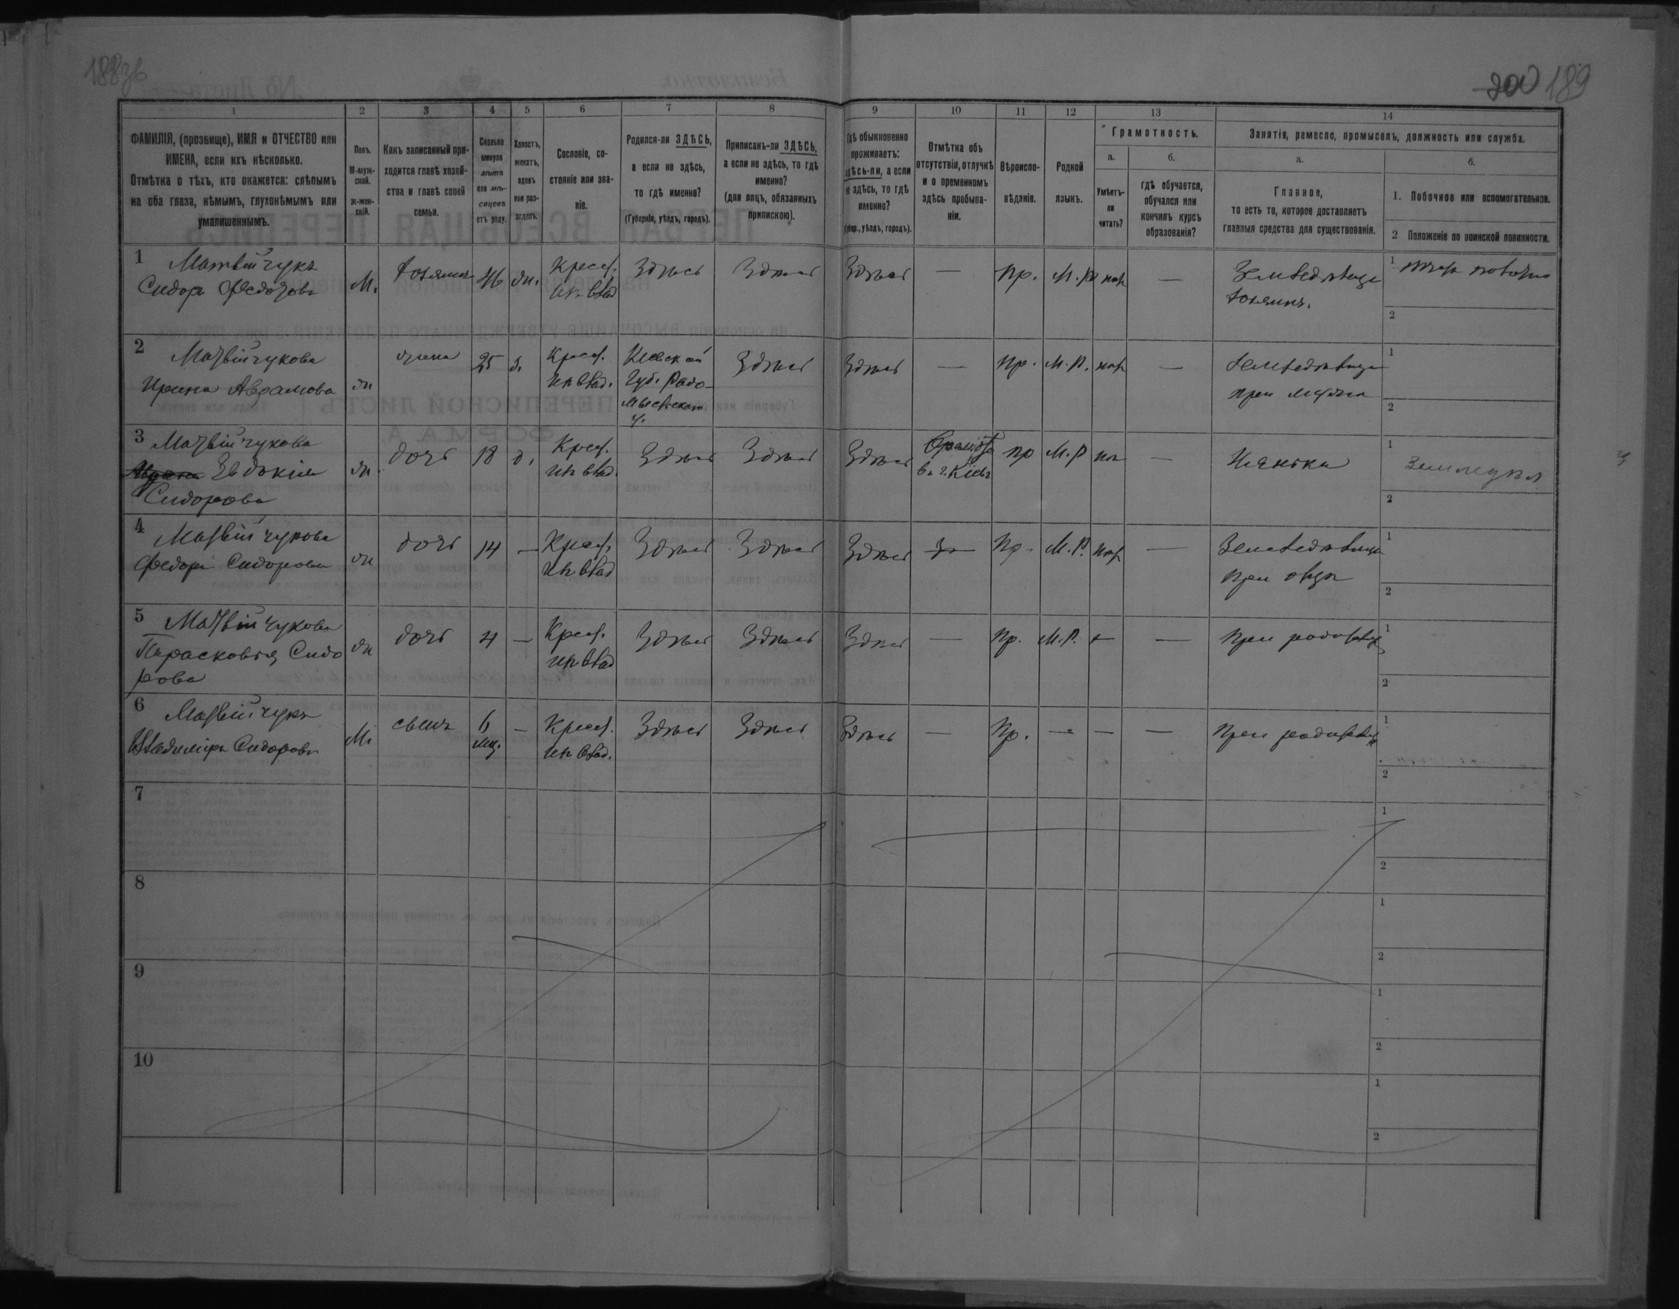 188об
200 189
1 2 3 4 5 6 7 8 9 10 11 12 13 14
ФАМИЛІЯ, (прозвище), ИМЯ и ОТЧЕСТВО или
ИМЕНА, если ихъ нѣсколько.
Отмѣтка о тѣхъ, кто окажется: слѣпымъ
на оба глаза, нѣмымъ, глухонѣмымъ или
умалишеннымъ.
Полъ.
М-муж-
ской.
ж-жен-
скій.
Какъ записанный при-
ходится главѣ хозяй-
ства и главѣ своей
семьи.
Сколько
минуло
лѣтъ
или мѣ-
сяцевъ
отъ роду.
Холостъ,
женатъ,
вдовъ
или раз-
веденъ.
Сословіе, со-
стояніе или зва-
ніе.
Родился-ли ЗДѢСЬ,
а если не здѣсь,
то гдѣ именно?
(Губернія, уѣздъ, городъ).
Приписанъ-ли ЗДѢСЬ,
а если не здѣсь, то гдѣ
именно?
(для лицъ, обязанныхъ
припискою).
Гдѣ обыкновенно
проживаетъ:
здѣсь-ли, а если
не здѣсь, то гдѣ
именно?
(Губер., уѣздъ, городъ).
Отмѣтка объ
отсутствіи, отлучкѣ
и о временномъ
здѣсь пребыва-
ніи.
Вѣроиспо-
вѣданіе.
Родной
языкъ.
Грамотность.
а.
Умѣетъ-
ли
читать?
б.
гдѣ обучается,
обучался или
кончилъ курсъ
образованія?
Занятія, ремесло, промыселъ, должность или служба.
а.
Главное,
то есть то, которое доставляетъ
главныя средства для существованія.
б.
1. Побочное или вспомогательное.
2 Положеніе по воинской повинности.
1 Матвійчукъ
Сидоръ Федоровъ М. хозяинъ 46 жн. Крест.
изъ влад. Здѣсь Здѣсь Здѣсь — Пр. М.Р. нѣт — Земледѣлецъ
хозяинъ. 1
2
2 Матвійчукова
Ирина Аврамова жн жена 25 з. Крест.
изъ влад. Кіевской
Губ. Радо-
мысльскаго
у. Здѣсь Здѣсь — Пр. М.Р. нѣт — Земледѣлица
при мужѣ 1
2
3 Матвійчукова
Евдокія
Сидорова жн. дочь 18 д. Крест.
изъ влад. Здѣсь Здѣсь Здѣсь
въ г. Кіевъ Пр М.Р нѣт Нянька 1
2
4 Матвійчукова
Федора Сидорова жн дочь 14 — Крест.
изъ влад Здѣсь Здѣсь Здѣсь — Пр. М.Р. нѣт — Земледѣлица
при отцѣ 1
2
5 Матвійчукова
Парасковія Сидо
рова жн дочь 4 — Крест.
изъ влад Здѣсь Здѣсь Здѣсь — Пр. М.Р. — — При родителяхъ 1
2
6 Матвійчукъ
Владиміръ Сидоровъ М. сынъ 6
мц. — Крест.
изъ влад. Здѣсь Здѣсь Здѣсь — Пр. — — — При родителяхъ 1
2
7 1
2
8 1
2
9 1
2
10 1
2